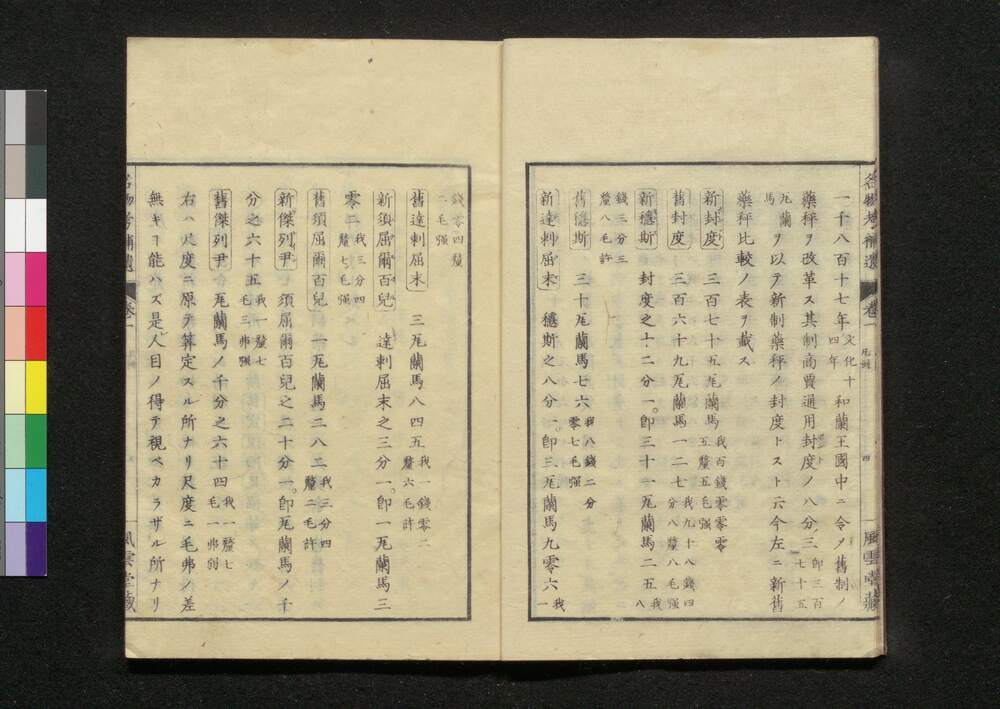 一千八百十七年文化十四年和蘭王國中ニ令ノ舊制ノ
藥秤ヲ改革ス其制商賈通用封度ノ八分三即三百七十五
瓦蘭馬ヲ以テ新制藥秤ノ封度トスト云今左ニ新舊
藥秤比較ノ表ヲ載ス
新封度 三百七十五瓦蘭馬我百錢零零零五釐五毛强
舊封度 三百六十九瓦蘭馬一二七我九十八錢四分八釐八毛强
新穩斯 封度之十二分一。卽三十一瓦蘭馬二五我八
錢三分三釐八毛許
舊穩斯 三十瓦蘭馬七六我八錢二分零七毛强
新達剌屈末 穩斯之八分一。卽三瓦蘭馬九零六我一
錢零四釐二毛强
舊達剌屈末 三瓦蘭馬八四五我一錢零二釐六毛許
新須屈爾百兒 達剌屈末之三分一。卽一瓦蘭馬三
零二我三分四釐七毛强
舊須屈爾百兒 一瓦蘭馬二八二我三分四釐二毛許
新傑列尹 須屈爾百兒之二十分一。卽瓦蘭馬ノ千
分之六十五我一釐七毛三弗强
舊傑列尹 瓦蘭馬ノ千分之六十四我一釐七毛一弗弱
右ハ尺度ニ原テ算定スル所ナリ尺度ニ毛弗ノ差
無キヿ能ハズ是人目ノ得テ視ベカラザル所ナリ
名物考補遺 卷一 四 風雲堂藏
名物考補遺 卷一 風雲堂藏